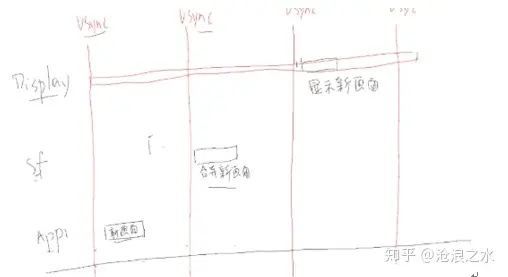 VSync VSync VSync VSync
Display
显示新画面
Sf
合并新画面
App1
新画面
知乎 @沧浪之水